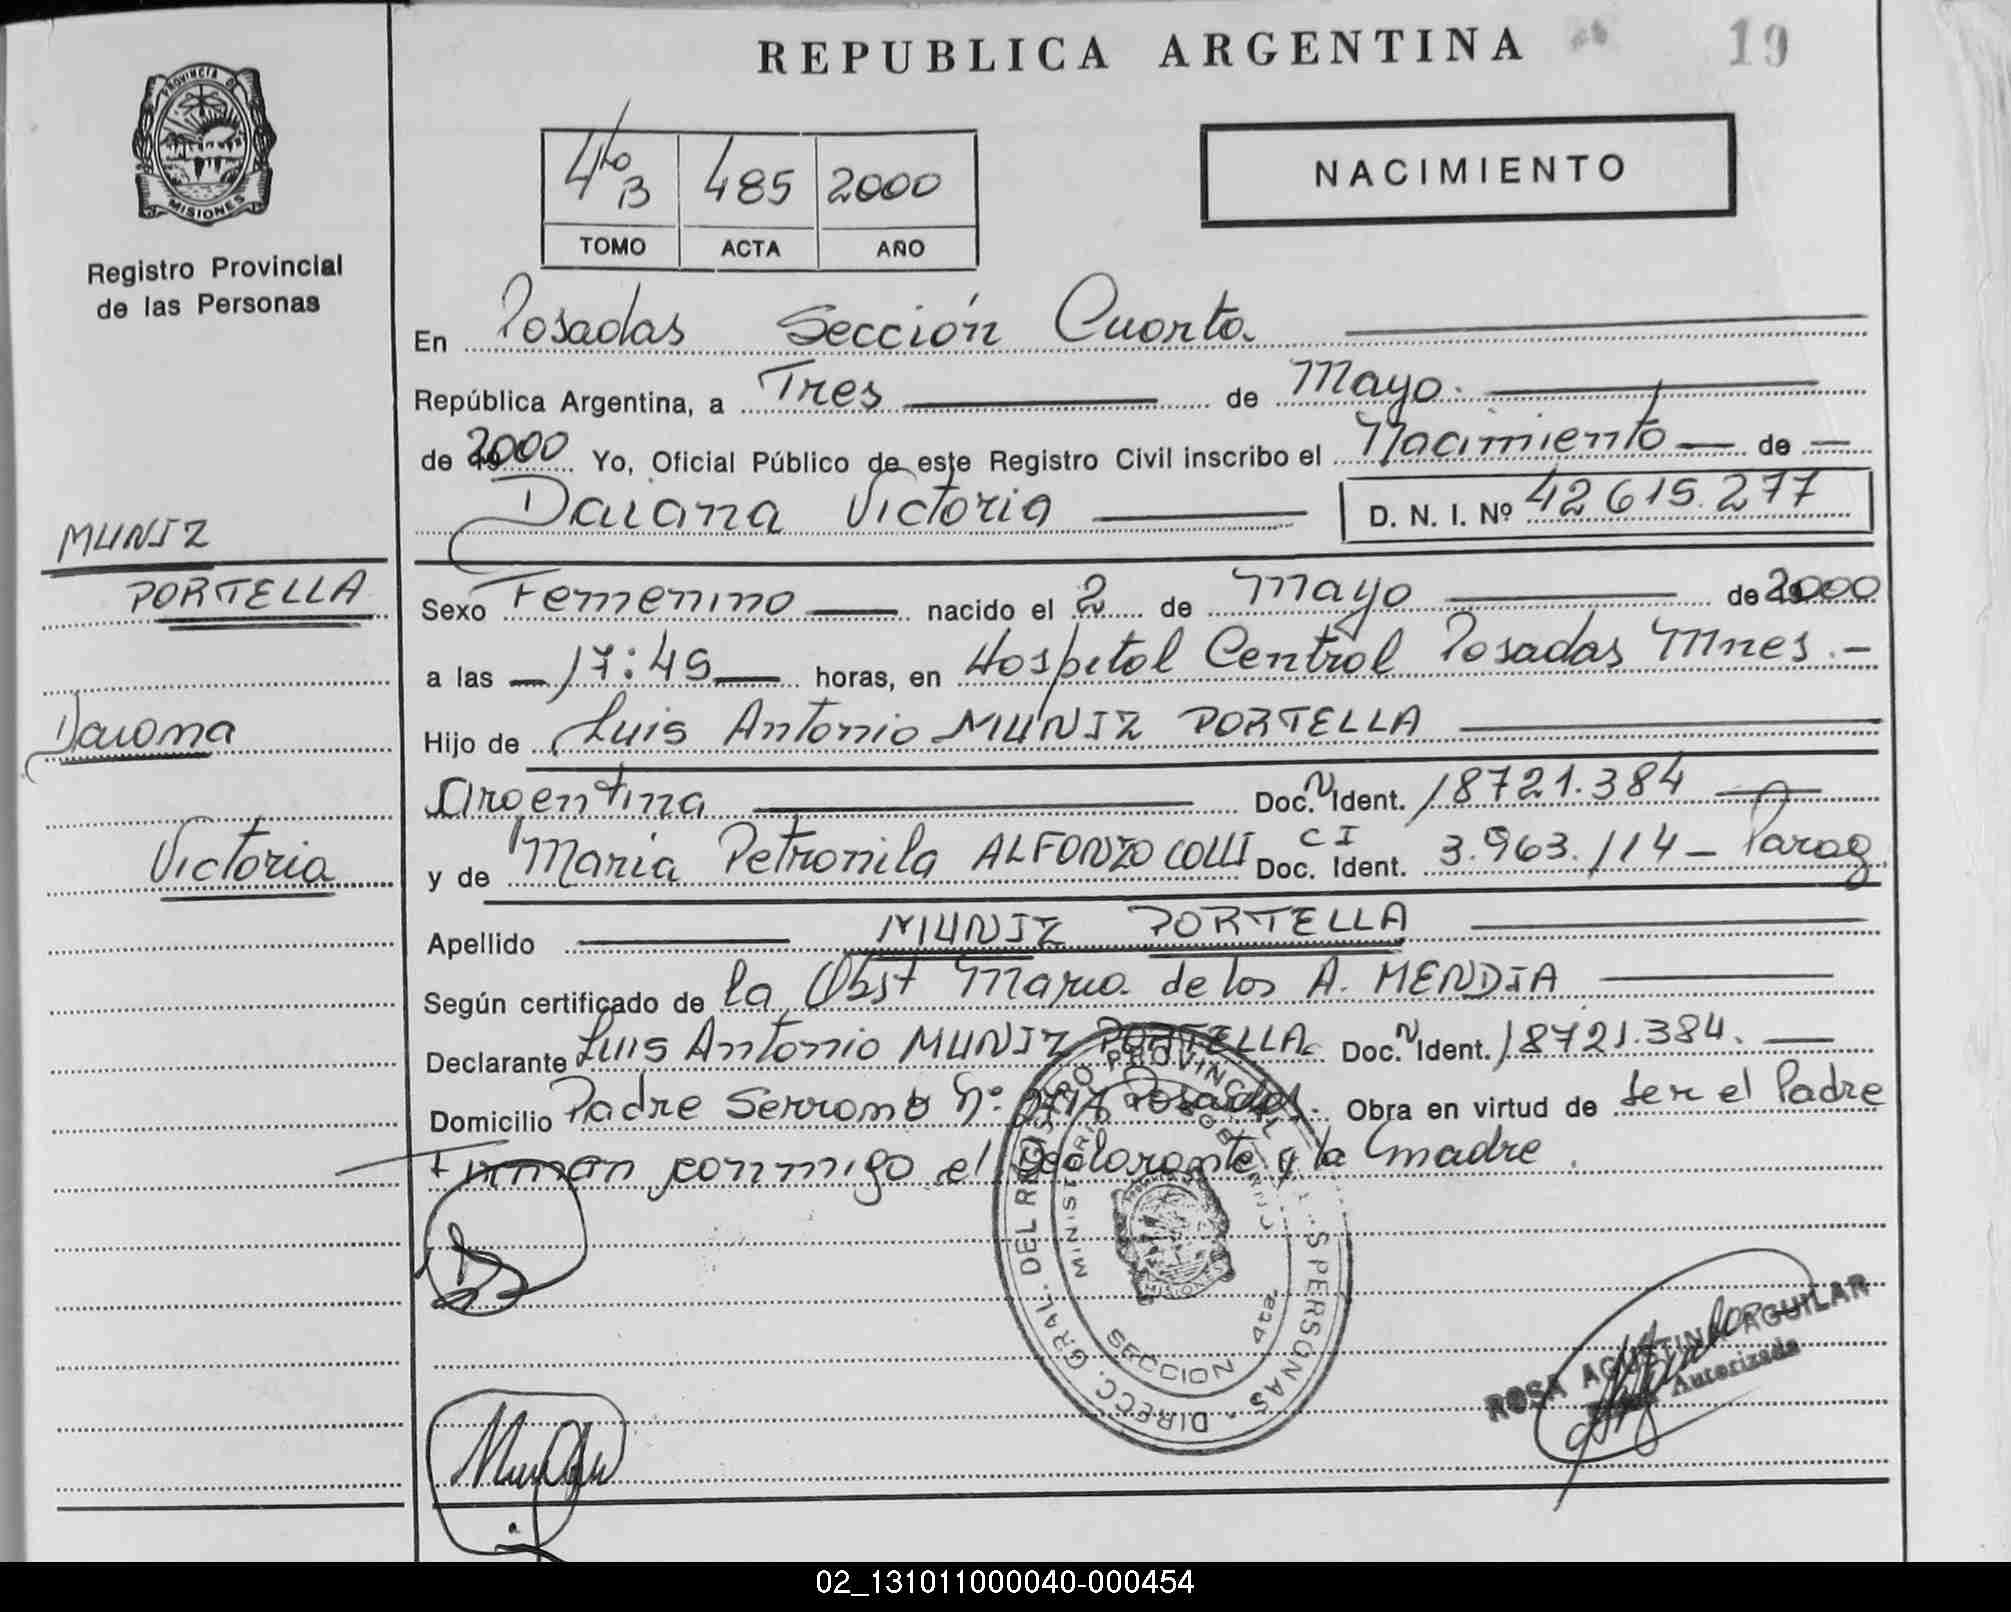 REPUBLICA ARGENTINA
19
PROVINCIA DE
MISIONES
Registro Provincial
de las Personas
4to B 485 2000
TOMO ACTA AÑO
NACIMIENTO
En Posadas Sección Cuarta
República Argentina, a Tres de Mayo.
de 2000 Yo, Oficial Público de este Registro Civil inscribo el Nacimiento de
Daiana Victoria D. N. I. Nº 42615.277
MUNIZ
PORTELLA
Daiana
Victoria
Sexo Femenino nacido el 2 de Mayo de 2000
a las 17:45 horas, en Hospital Central Posadas Mnes.
Hijo de Luis Antonio MUNIZ PORTELLA
Argentina Doc. N Ident. 18721.384
y de Maria Petronila ALFONZO COLLI Doc. CI Ident. 3.963.114 - Parag
Apellido MUNIZ PORTELLA
Según certificado de la Obst Maria de los A. MENDIA
Declarante Luis Antonio MUNIZ PORTELLA Doc. N Ident. 18721.384.
Domicilio Padre Serrano Nº Posadas. Obra en virtud de ser el Padre
Firman conmigo el Declarante y la madre.
DIRECC. GRAL. DEL REGISTRO PROVINCIAL PERSONAS
MINISTERIO DE GOBIERNO
MISIONES
SECCION 4ta
ROSA AGUSTINA AGUILAR
Autorizada
02_131011000040-000454